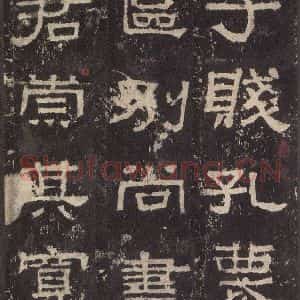 子賤孔蔑
區別尚書
君崇其寬
Shufawang.CN